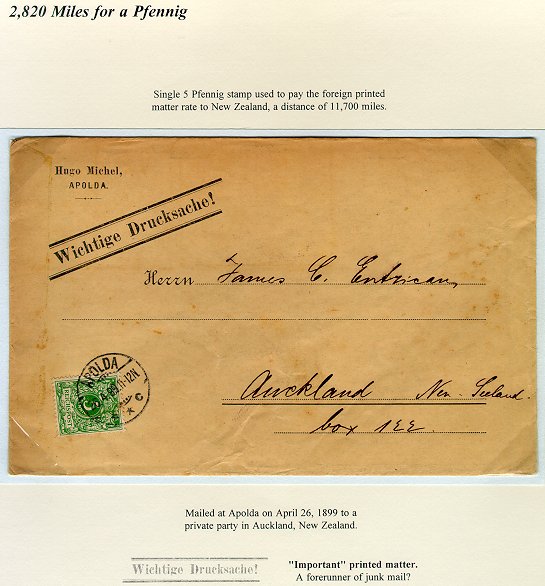 2,820 Miles for a Pfennig
Single 5 Pfennig stamp used to pay the foreign printed
matter rate to New Zealand, a distance of 11,700 miles.
Hugo Michel,
APOLDA.
Wichtige Drucksache!
Herrn James C. Entrican,
APOLDA
11-12N
C
Auckland Neu-Seeland.
box 122.
Mailed at Apolda on April 26, 1899 to a
private party in Auckland, New Zealand.
Wichtige Drucksache!
"Important" printed matter.
A forerunner of junk mail?